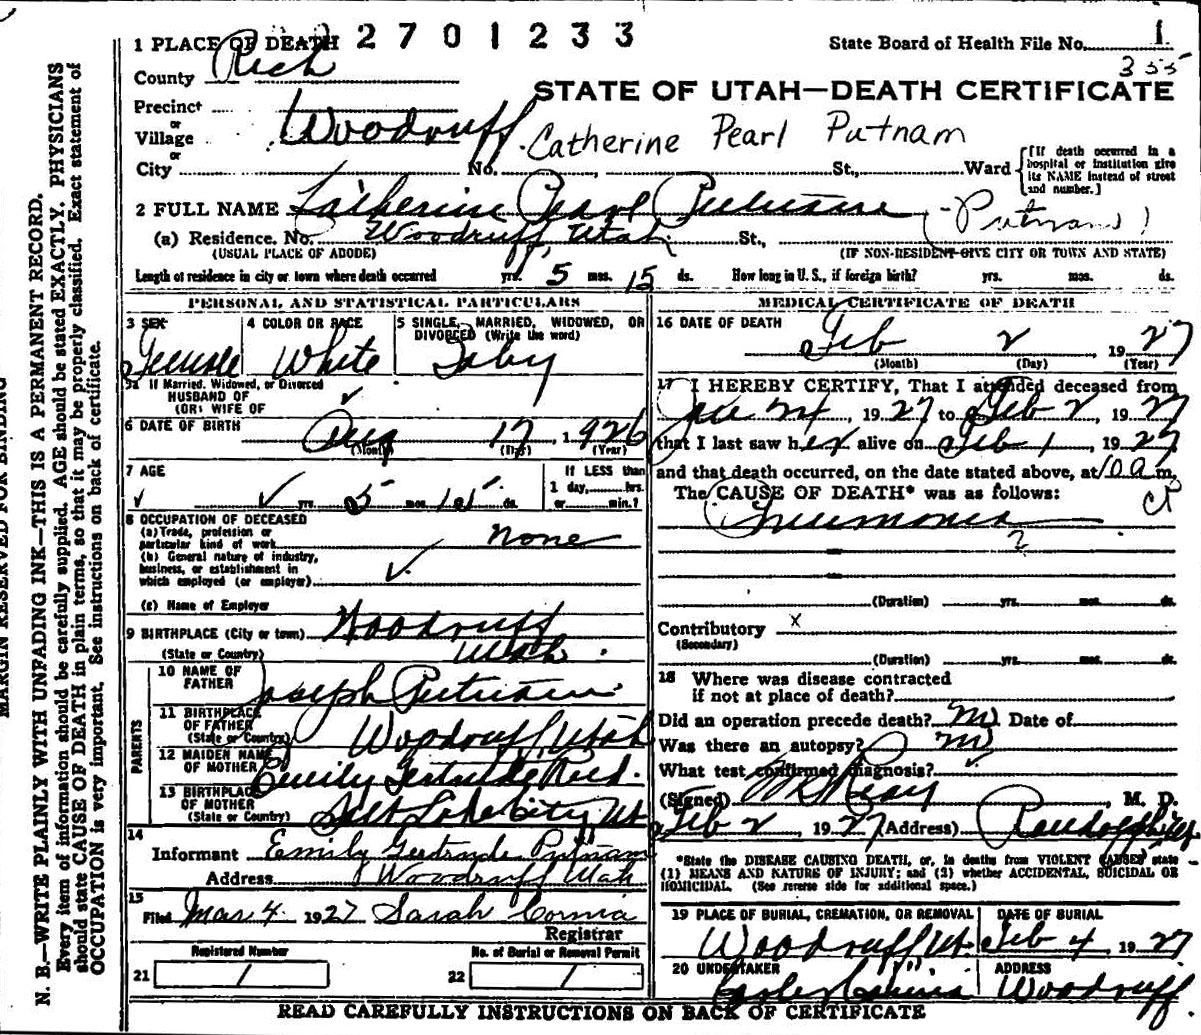 1 PLACE OF DEATH 2 7 0 1 2 3 3
State Board of Health File No. 1
County Rich
355
STATE OF UTAH—DEATH CERTIFICATE
Precinct
or
Village Woodruff
Catherine Pearl Putnam
or
City No. , St., Ward
[If death occurred in a hospital or institution give its NAME instead of street and number.]
2 FULL NAME Catherine Pearl Putnam (Putnam)
(a) Residence. No. Woodruff Utah St.,
(USUAL PLACE OF ABODE) (IF NON-RESIDENT GIVE CITY OR TOWN AND STATE)
Length of residence in city or town where death occurred yrs. 5 mos. 15 ds. How long in U. S., if foreign birth? yrs. mos. ds.
PERSONAL AND STATISTICAL PARTICULARS
3 SEX 4 COLOR OR RACE 5 SINGLE, MARRIED, WIDOWED, OR DIVORCED (Write the word)
Female White Baby
5a If Married, Widowed, or Divorced
HUSBAND OF
(OR) WIFE OF
6 DATE OF BIRTH Aug 17, 1926
(Month) (Day) (Year)
7 AGE If LESS than
1 day, hrs.
yrs. 5 mos. 15 ds. or min.?
8 OCCUPATION OF DECEASED
(a) Trade, profession or
particular kind of work None
(b) General nature of industry,
business, or establishment in
which employed (or employer)
(c) Name of Employer
9 BIRTHPLACE (City or town) Woodruff
(State or Country) Utah.
PARENTS
10 NAME OF
FATHER Joseph Putnam
11 BIRTHPLACE
OF FATHER
(State or Country) Woodruff, Utah
12 MAIDEN NAME
OF MOTHER Emily Gertrude Reed.
13 BIRTHPLACE
OF MOTHER
(State or Country) Salt Lake City Ut
14
Informant Emily Gertrude Putnam
Address Woodruff Utah
15
Filed Mar 4 1927 Sarah Cornia
Registrar
Registered Number No. of Burial or Removal Permit
21 1 22 1
MEDICAL CERTIFICATE OF DEATH
16 DATE OF DEATH
Feb 2 1927
(Month) (Day) (Year)
17 I HEREBY CERTIFY, That I attended deceased from
Jan 24, 1927 to Feb 2, 1927
that I last saw her alive on Feb 1, 1927
and that death occurred, on the date stated above, at 10 a m.
The CAUSE OF DEATH* was as follows:
Pneumonia
?
(Duration) yrs. mos. ds.
Contributory x
(Secondary)
(Duration) yrs. mos. ds.
18 Where was disease contracted
if not at place of death?
Did an operation precede death? No Date of
Was there an autopsy? No
What test confirmed diagnosis?
(Signed) Reay, M. D.
Feb 2, 1927 (Address) Randolph Ut.
*State the DISEASE CAUSING DEATH, or, in deaths from VIOLENT CAUSES state
(1) MEANS AND NATURE OF INJURY; and (2) whether ACCIDENTAL, SUICIDAL OR
HOMICIDAL. (See reverse side for additional space.)
19 PLACE OF BURIAL, CREMATION, OR REMOVAL DATE OF BURIAL
Woodruff Ut. Feb 4 1927
20 UNDERTAKER ADDRESS
Woodruff
READ CAREFULLY INSTRUCTIONS ON BACK OF CERTIFICATE
MARGIN RESERVED FOR BINDING
N. B.—WRITE PLAINLY WITH UNFADING INK—THIS IS A PERMANENT RECORD.
Every item of information should be carefully supplied. AGE should be stated EXACTLY. PHYSICIANS
should state CAUSE OF DEATH in plain terms, so that it may be properly classified. Exact statement of
OCCUPATION is very important. See instructions on back of certificate.